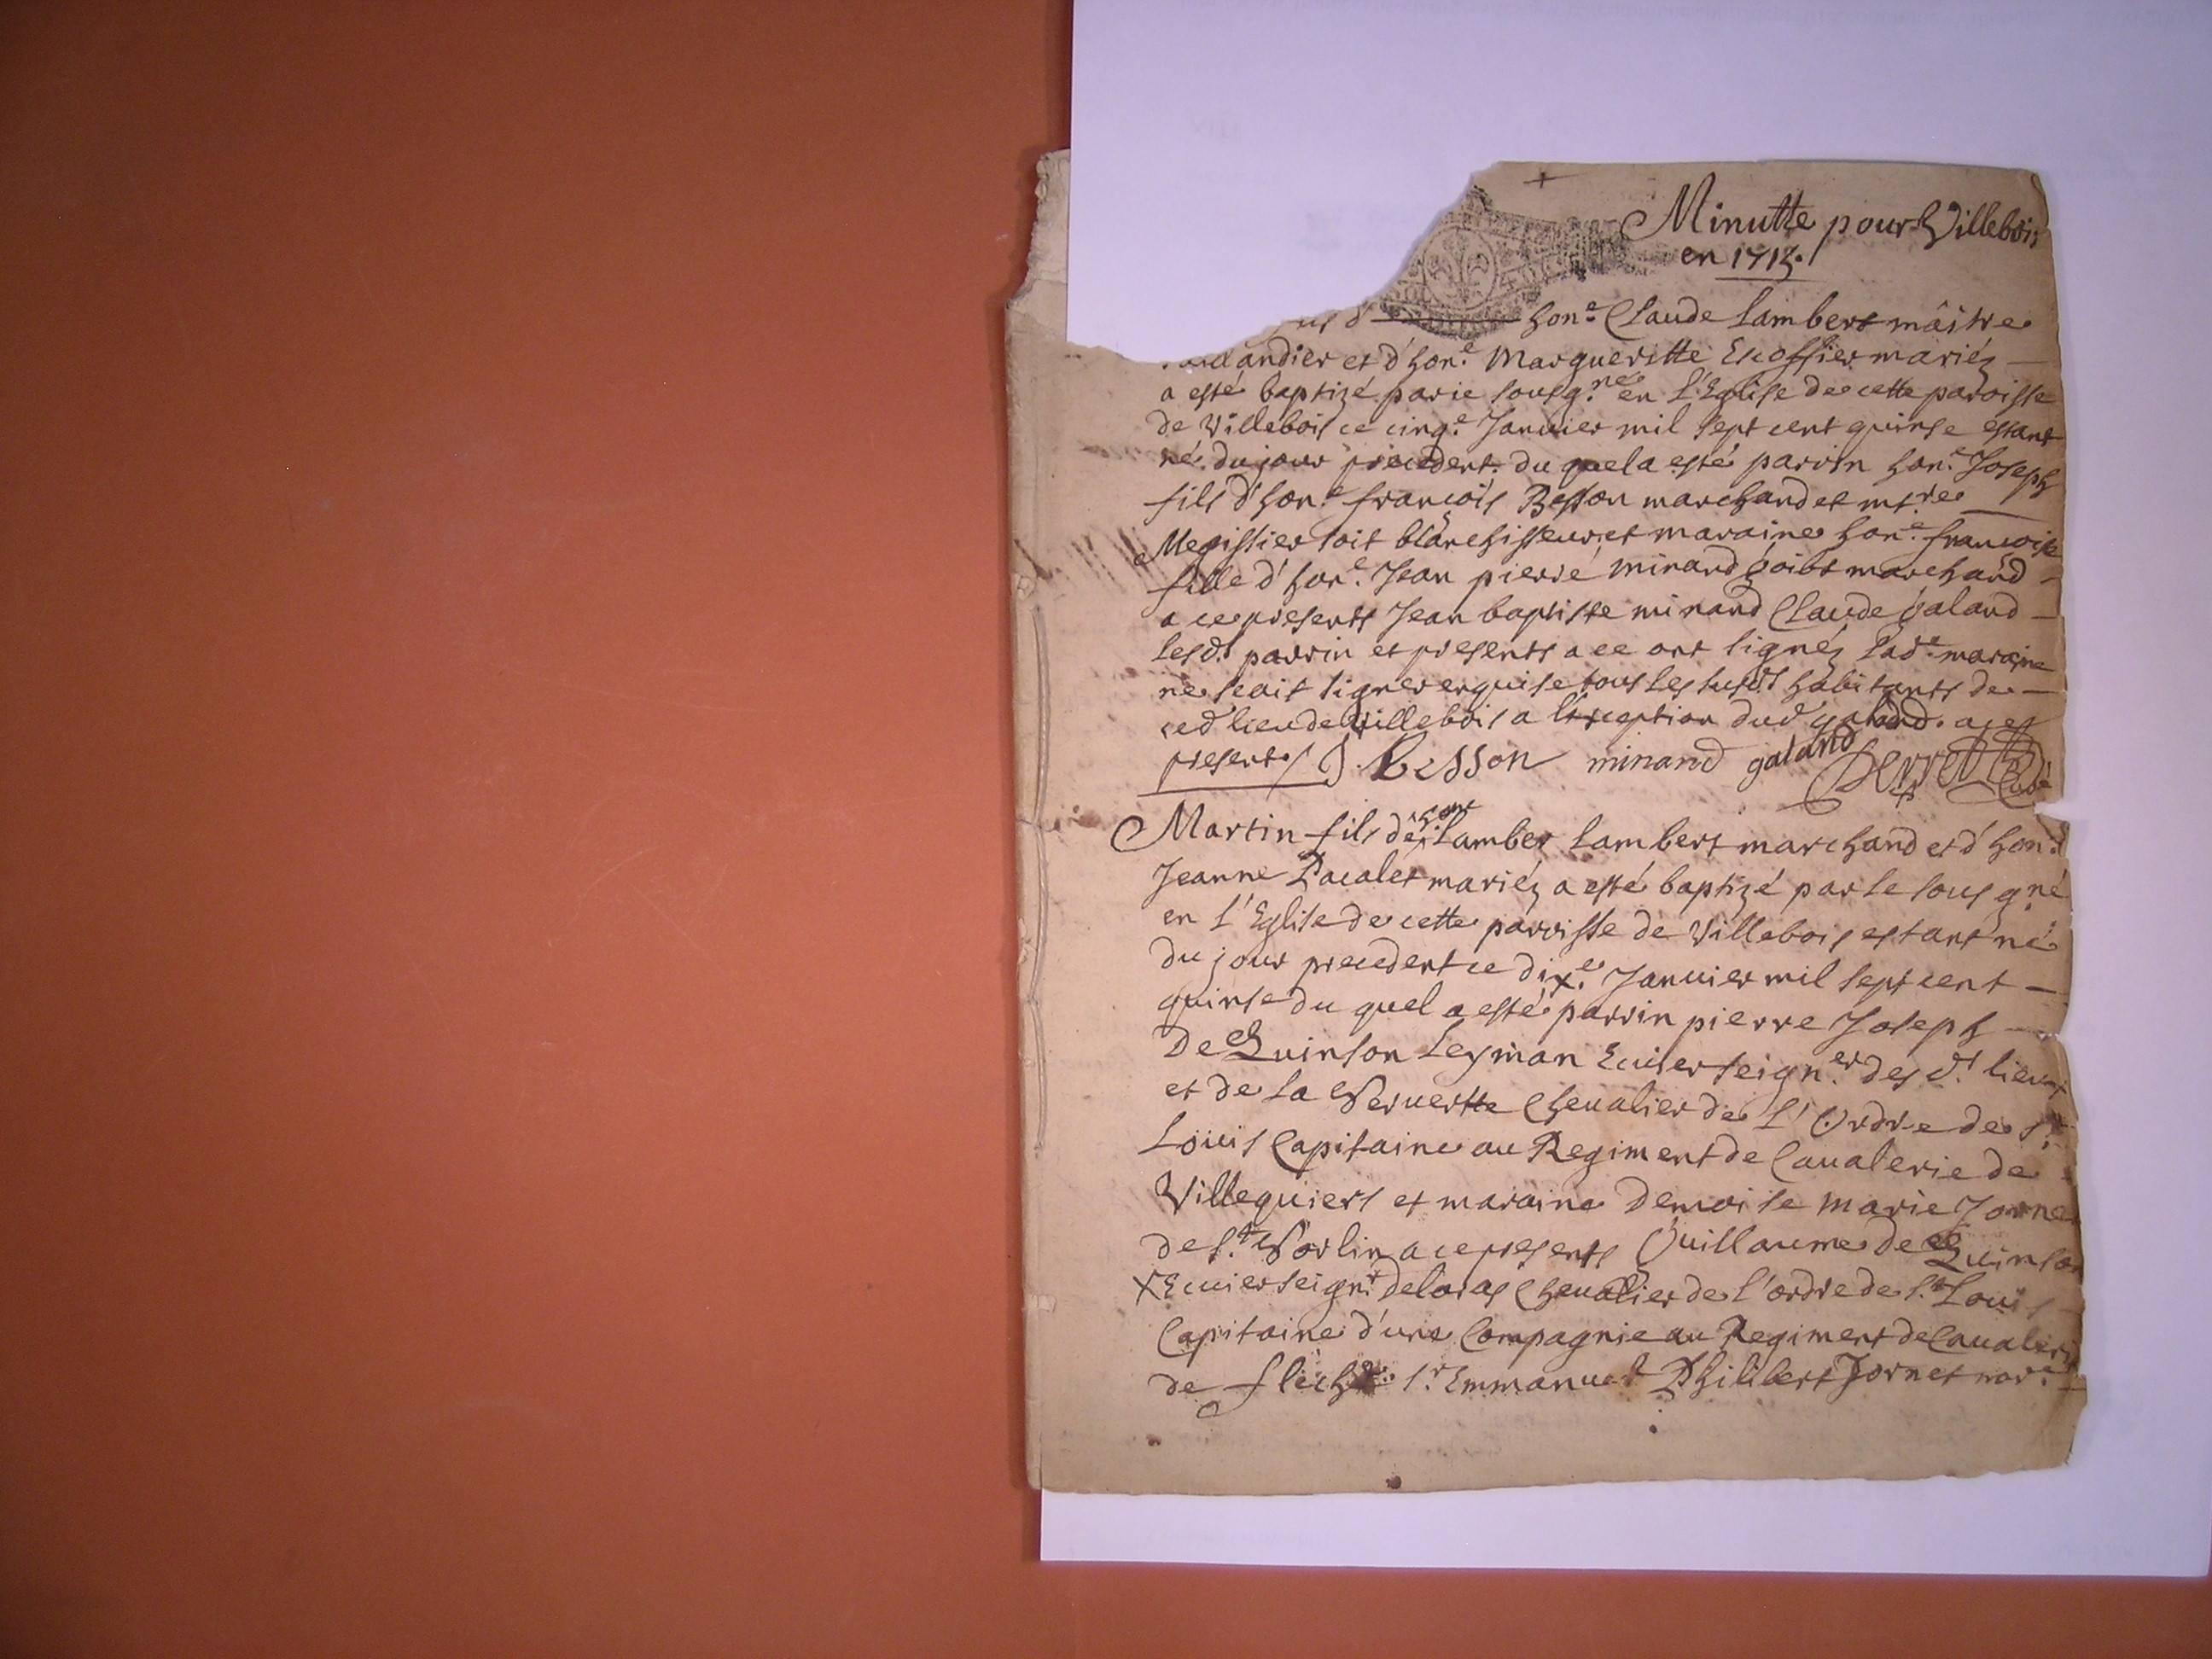 Minutte pour Villebois
en 1715.
hon.e Claude Lambert mâitre
andier et d'hon.e Margueritte Excoffier mariéz
a esté baptizé par ie sousg.né en l'Eglise de cette paroisse
de Villebois ce cinq.e Januier mil sept cent quinse estant
né du jour precedent. du quel a esté parrin hon.e Joseph
fils d'hon.e françois Besson marchand et mt.re
Megissier soit blanchisseur, et maraine hon.e françoise
fille d'hon.e Jean pierre minand marchand
a ce presents Jean baptiste minand Claude Galand
lesd.ts parrin et presents a ce ont signéz lad.e maraine
ne scait signer enquise tous les susd.ts habitants de
ced lieu de Villebois a l'exception dud galand. a ces
presents / J. besson minand galand Curé
Martin fils de hon.e Lamber Lambert marchand et d'hon.e
Jeanne Pacalet mariéz a esté baptizé par le sousg.né
en l'Eglise de cette paroisse de Villebois estant né
du jour precedent ce dix.e Januier mil sept cent
quinse du quel a esté parrin pierre Joseph
De Quinson Leyman Ecuier seign.er des d.ts lieux
et de la Veruette Cheualier de L'Ordre de s.t
Loüis Capitaine au Regiment de Caualerie de
Villequiers et maraine Demoise marie Jorne
de s.t Sorlin a ce presents Guillaume de Quinson
Ecuier seign.r de loras Cheualier de l'ordre de s.t Louis
Capitaine d'une Compagnie au Regiment de Caualerie
de s.r Emmanuel Philibert Jornet not.re